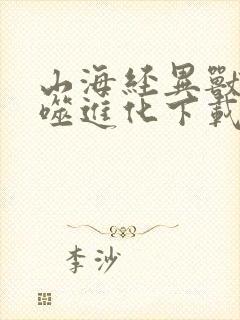 山海经異獸
噬進化下載
李沙